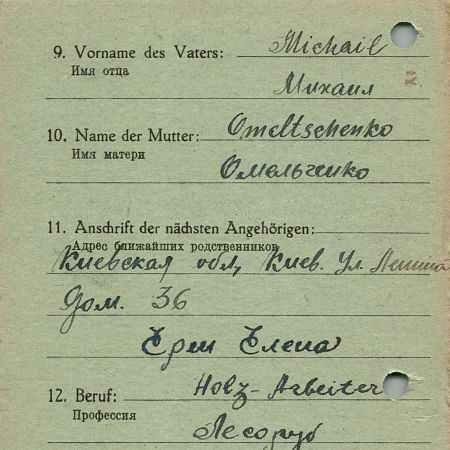 9. Vorname des Vaters: Michail
Имя отца
Михаил
10. Name der Mutter: Omeltschenko
Имя матери
Омельченко
11. Anschrift der nächsten Angehörigen:
Адрес ближайших родственников
Киевская обл, Киев. Ул. Ленина
Дом. 36
Елена
12. Beruf: Holz-Arbeiter
Профессия
Лесоруб